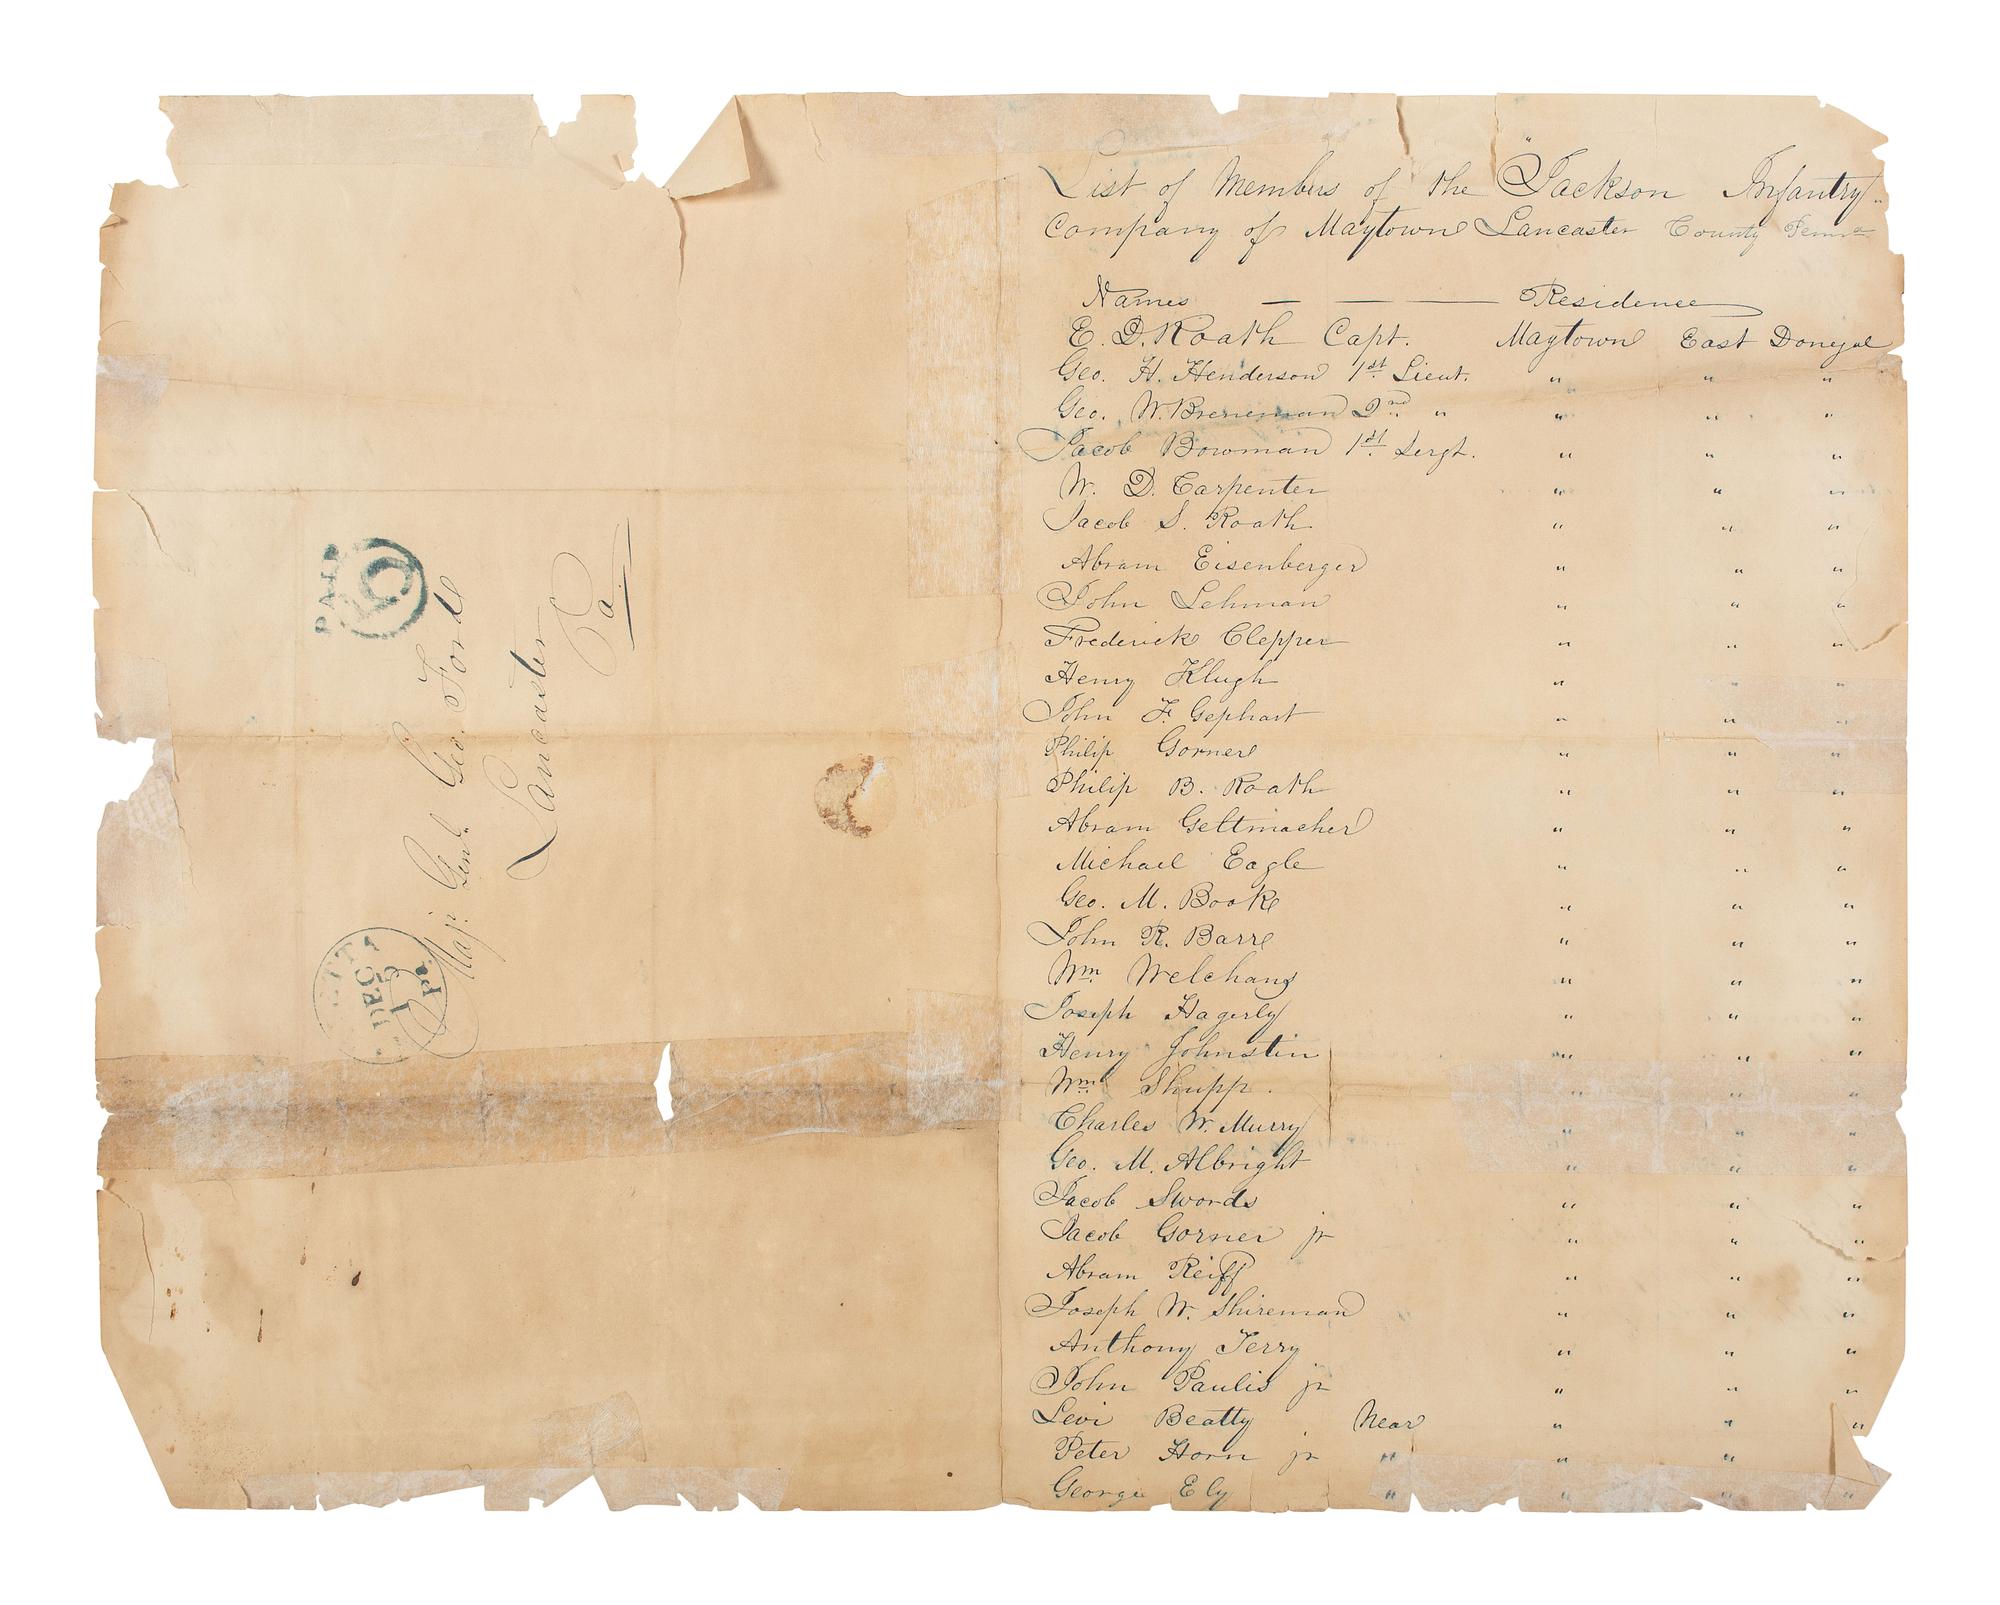 PAID
5
Maj. Genl. Geo. Ford
Lancaster
Pa.
DEC
15
Pa
List of Members of the "Jackson Infantry"
Company of Maytown Lancaster County Penna
Names — — — Residence
E. D. Roath Capt. Maytown East Donegal
Geo. H. Henderson 1st Lieut. " " "
Geo. W. Breneman 2nd " " " "
Jacob Bowman 1st Sergt. " " "
W. D. Carpenter " " "
Jacob S. Roath. " " "
Abram Eisenberger " " "
John Lehman " " "
Frederick Clepper " " "
Henry Klugh " " "
John F. Gephart " " "
Philip Gorner " " "
Philip B. Roath " " "
Abram Geltmacher " " "
Michael Eagle " " "
Geo. M. Booke " " "
John R. Barre " " "
Wm Welchans " " "
Joseph Hagerly " " "
Henry Johnstin " " "
Wm Shupp. " " "
Charles W. Murry " " "
Geo. M. Albright " " "
Jacob Swords " " "
Jacob Gorner jr " " "
Abram Reiff " " "
Joseph W. Shireman " " "
Anthony Terry " " "
John Paulis jr " " "
Levi Beatty Near " " "
Peter Horn jr " " " "
George Ely " " " "